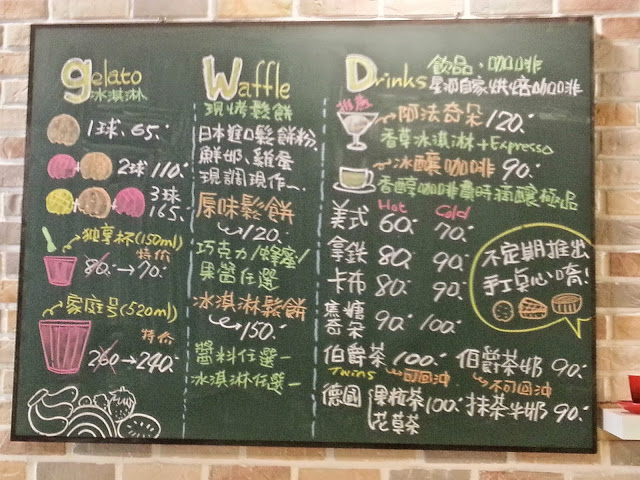 gelato
冰淇淋
1球 65.
2球 110.
3球
165.
独享杯(150ml)
特价
80.→70.
家庭号(520ml)
特价
260→240.
Waffle
現烤鬆餅
日本進口鬆餅粉.
鮮奶、雞蛋
現調現作
原味鬆餅
120.
巧克力/蜂蜜/
果醬任選
冰淇淋鬆餅
150.
醬料任選一
冰淇淋任選一
Drinks
飲品、咖啡
自家烘焙咖啡
推薦
阿法奇朵 120.
香草冰淇淋+Expresso
冰釀咖啡 90.
香醇咖啡費時滴釀極品
Hot Cold
美式 60. 70.
拿鉄 80. 90.
卡布 80. 90.
焦糖
奇朵 90. 100.
伯爵茶 100. 伯爵茶奶 90.
Twins 可回沖 不可回沖
德國 果粒茶 100. 抹茶牛奶 90.
花草茶
不定期推出
手工点心唷!